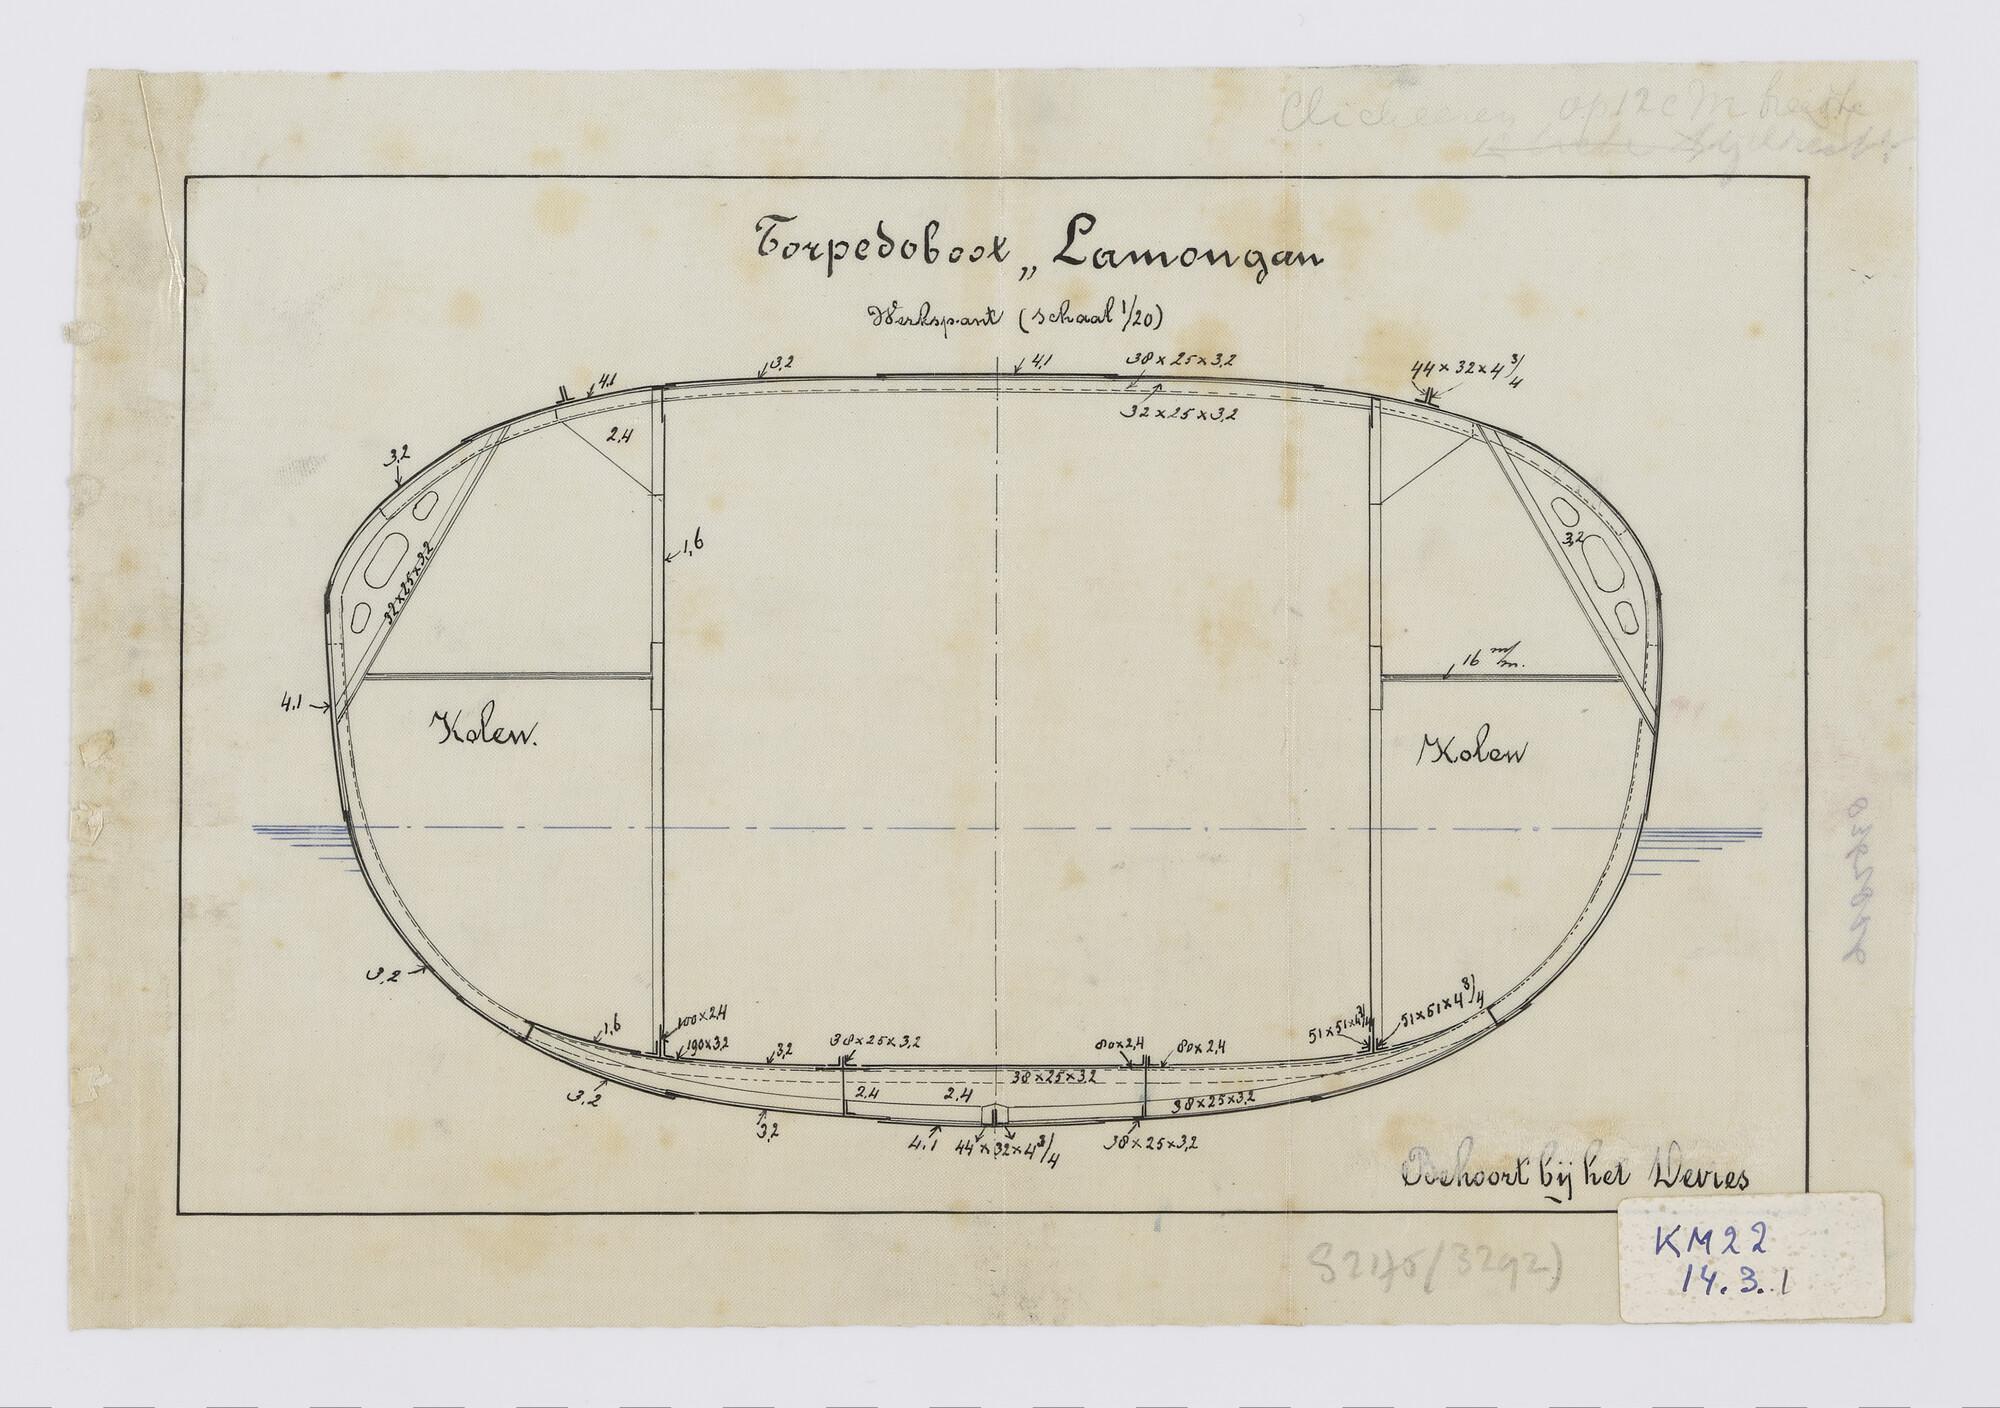 Clicheeren op 12 cM breedte
Torpedoboot „Lamongan
Werkspant (schaal 1/20)
3,2
4,1
38 x 25 x 3,2
44 x 32 x 4 3/4
4,1
32 x 25 x 3,2
2,4
3,2
1,6
32 x 25 x 3,2
3,2
16 m/m.
4,1
Kolen.
Kolen
3,2
1,6
100 x 2,4
190 x 3,2
3,2
38 x 25 x 3,2
80 x 2,4
80 x 2,4
51 x 51 x 4 3/4
51 x 51 x 4 3/4
38 x 25 x 3,2
3,2
2,4
2,4
38 x 25 x 3,2
3,2
4,1
44 x 32 x 4 3/4
38 x 25 x 3,2
Behoort bij het Devies
KM22
14.3.1